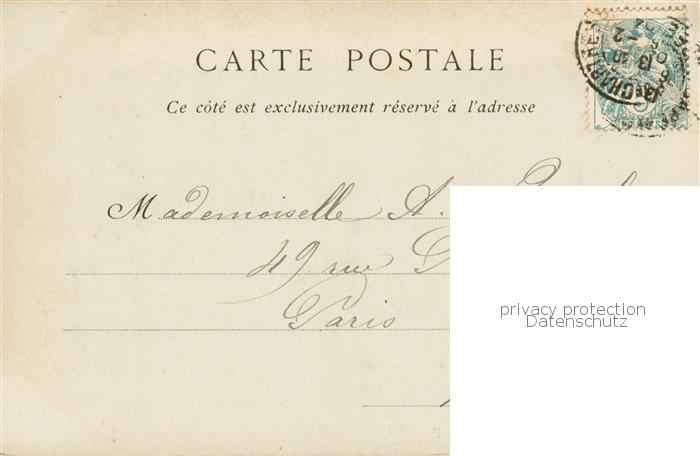 CARTE POSTALE
Ce côté est exclusivement réservé à l'adresse
Mademoiselle A.
49 rue
Paris
privacy protection
Datenschutz